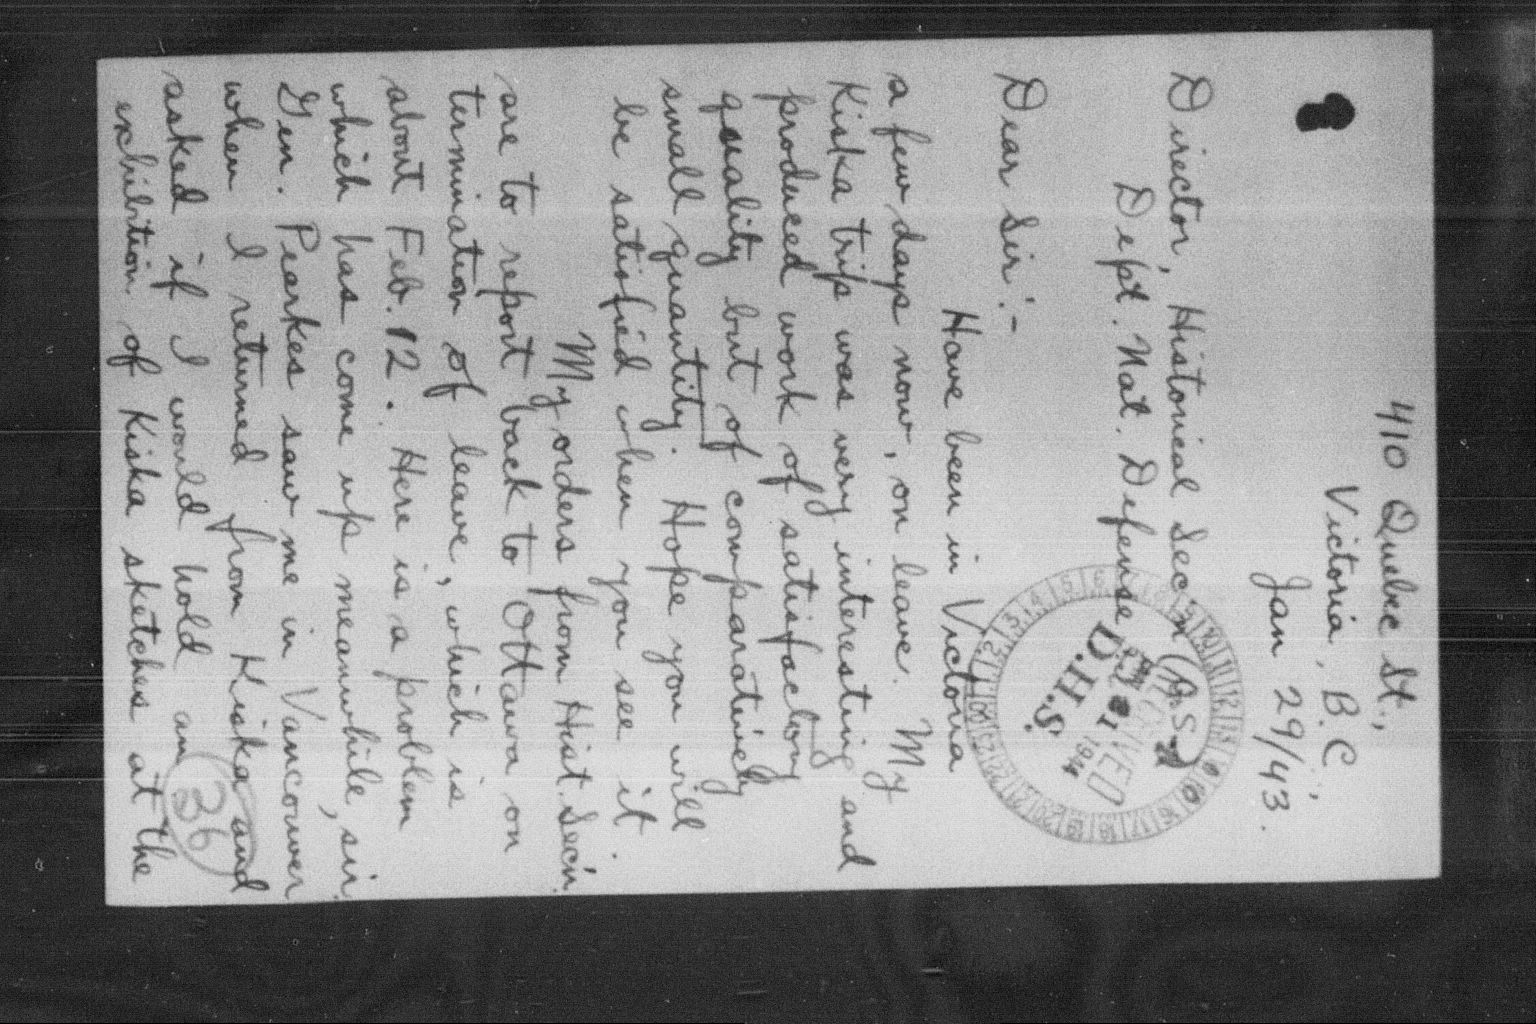 410 Quebec St.,
Victoria, B.C.,
Jan 29/43.
Director, Historical Sec'n (G.S.)
Dept. Nat. Defense
RECEIVED
1944
D.H.S.
Dear Sir:-
Have been in Victoria
a few days now, on leave. My
Kiska trip was very interesting and
produced work of satisfactory
quality but of comparatively
small quantity. Hope you will
be satisfied when you see it.
My orders from Hist. Sec'n.
are to report back to Ottawa on
termination of leave, which is
about Feb. 12. Here is a problem
which has come up meanwhile, sir.
Gen. Pearkes saw me in Vancouver
when I returned from Kiska and
asked if I would hold an
exhibition of Kiska sketches at the
36